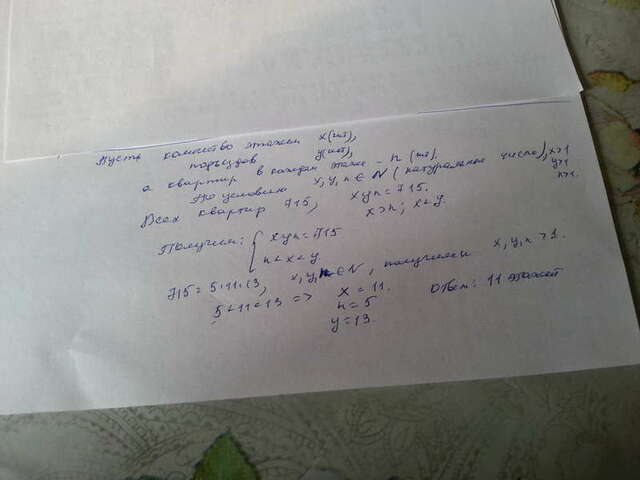 Пусть количество этажей x(шт),
подъездов y(шт),
а квартир в каждом этаже - n (шт).
По условию x,y,n ∈ N (натуральные число), x>1
y>1
n>1.
Всех квартир 715, xyn = 715.
x>n; x<y.
Получим: { xyn=715
n<x<y
715=5·11·13, x,y,n ∈ N, получаем x,y,n >1.
5<11<13 => x = 11. Ответ: 11 этажей
n=5
y=13.